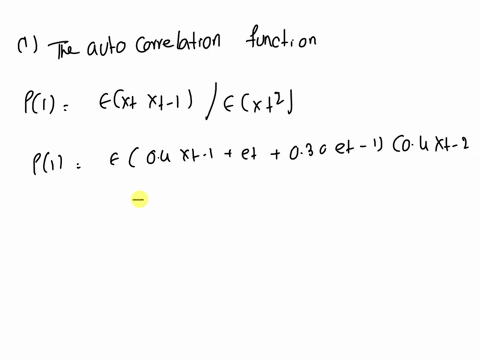 (1) The auto correlation function
ρ(1) = E(xt xt-1) / E(xt²)
ρ(1) = E(0.4 xt-1 + et + 0.30 et-1) (0.4 xt-2
=